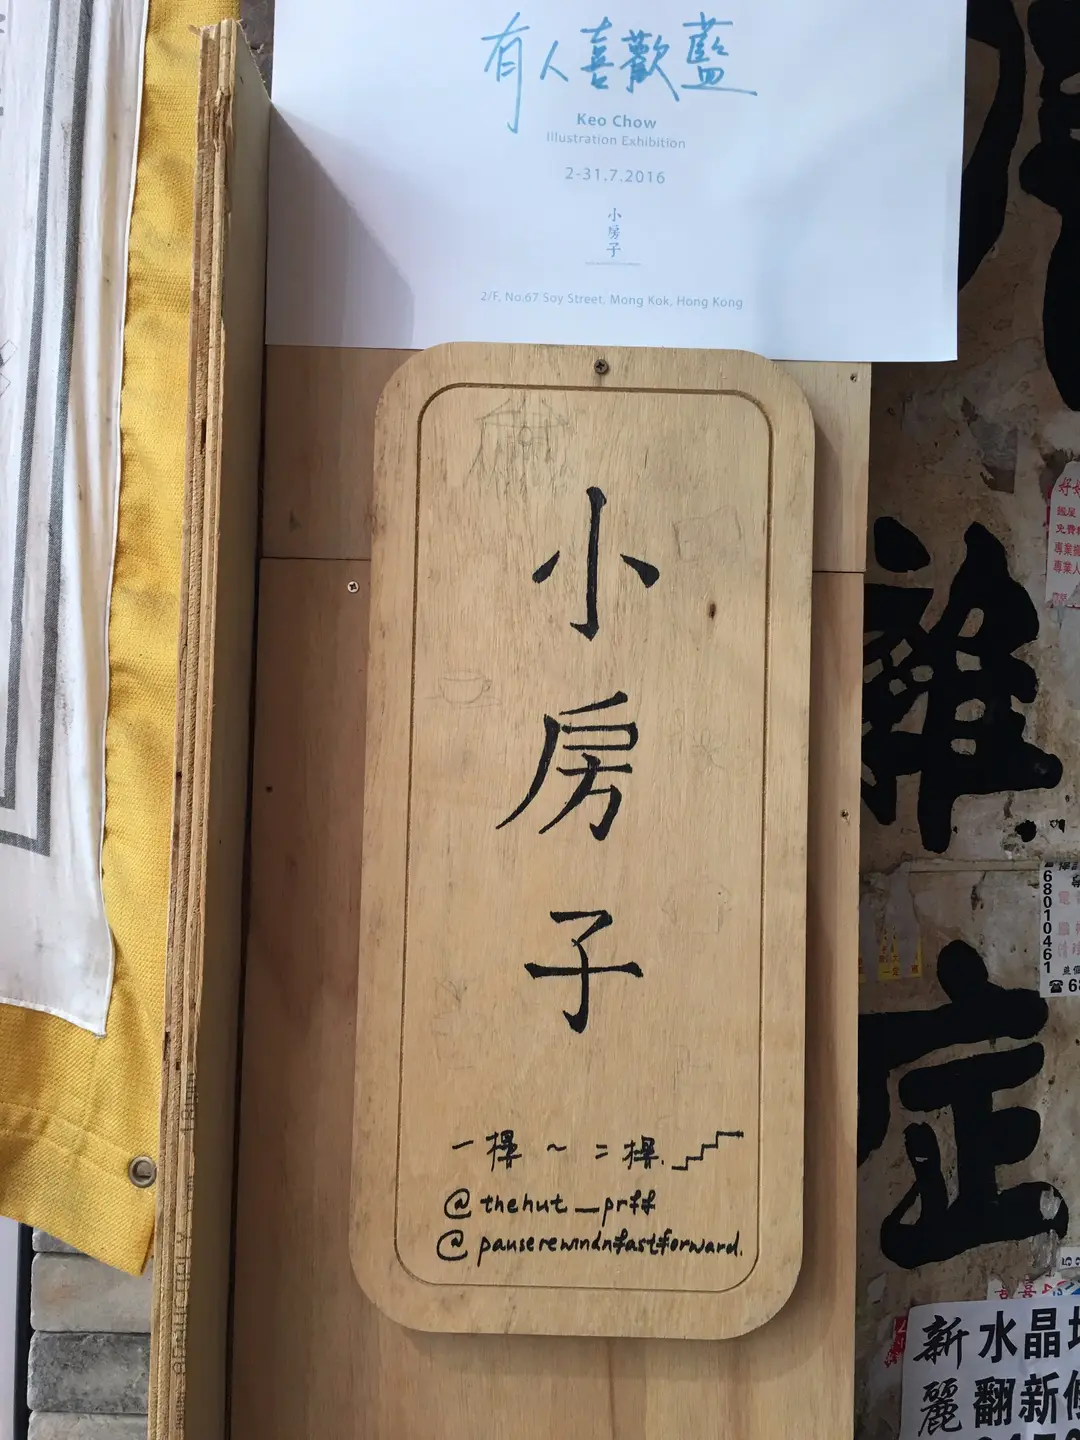 有人喜歡藍
Keo Chow
Illustration Exhibition
2-31.7.2016
小房子
2/F, No.67 Soy Street, Mong Kok, Hong Kong
小
房
子
一樓 ~ 二樓.
@thehut_prff
@pauserewindnfastforward.
雜
症
好好
免費
專業
專業人
68010461
新
麗
水晶
翻新